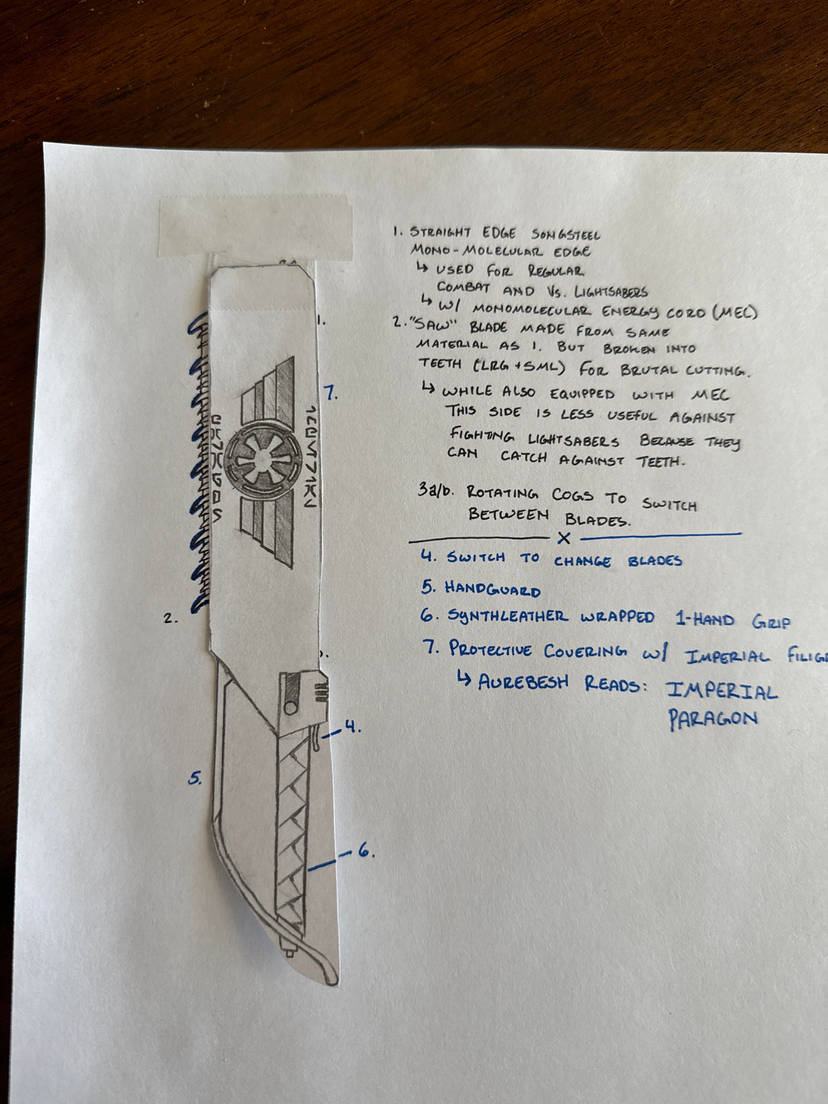 1. STRAIGHT EDGE SONGSTEEL
MONO-MOLECULAR EDGE
↳ USED FOR REGULAR
COMBAT AND VS. LIGHTSABERS
↳ W/ MONOMOLECULAR ENERGY CORD (MEC)
2. "SAW" BLADE MADE FROM SAME
MATERIAL AS 1. BUT BROKEN INTO
TEETH (LRG + SML) FOR BRUTAL CUTTING.
↳ WHILE ALSO EQUIPPED WITH MEC
THIS SIDE IS LESS USEFUL AGAINST
FIGHTING LIGHTSABERS BECAUSE THEY
CAN CATCH AGAINST TEETH.
3a/b. ROTATING COGS TO SWITCH
BETWEEN BLADES.
X
4. SWITCH TO CHANGE BLADES
5. HANDGUARD
6. SYNTHLEATHER WRAPPED 1-HAND GRIP
7. PROTECTIVE COVERING W/ IMPERIAL FILIG
↳ AUREBESH READS: IMPERIAL
PARAGON
1.
7.
2.
4.
5.
6.